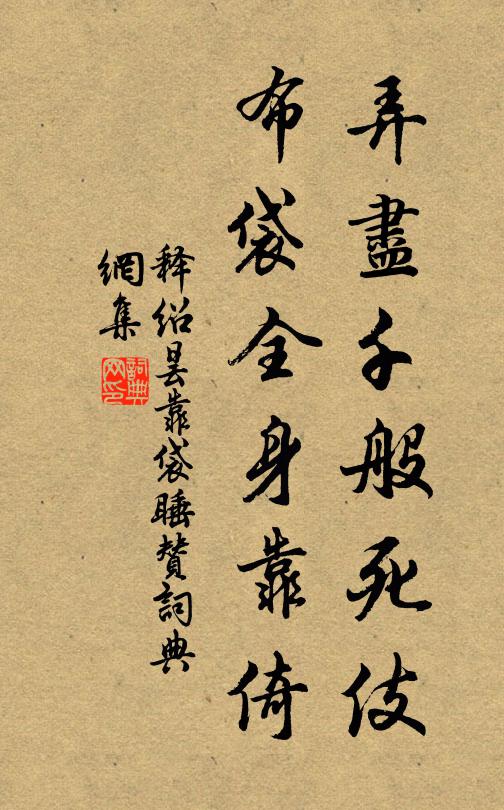 弄盡千般死伎
布袋全身靠倚
释绍昙靠袋睡贊詞典
網集
詞典
网印